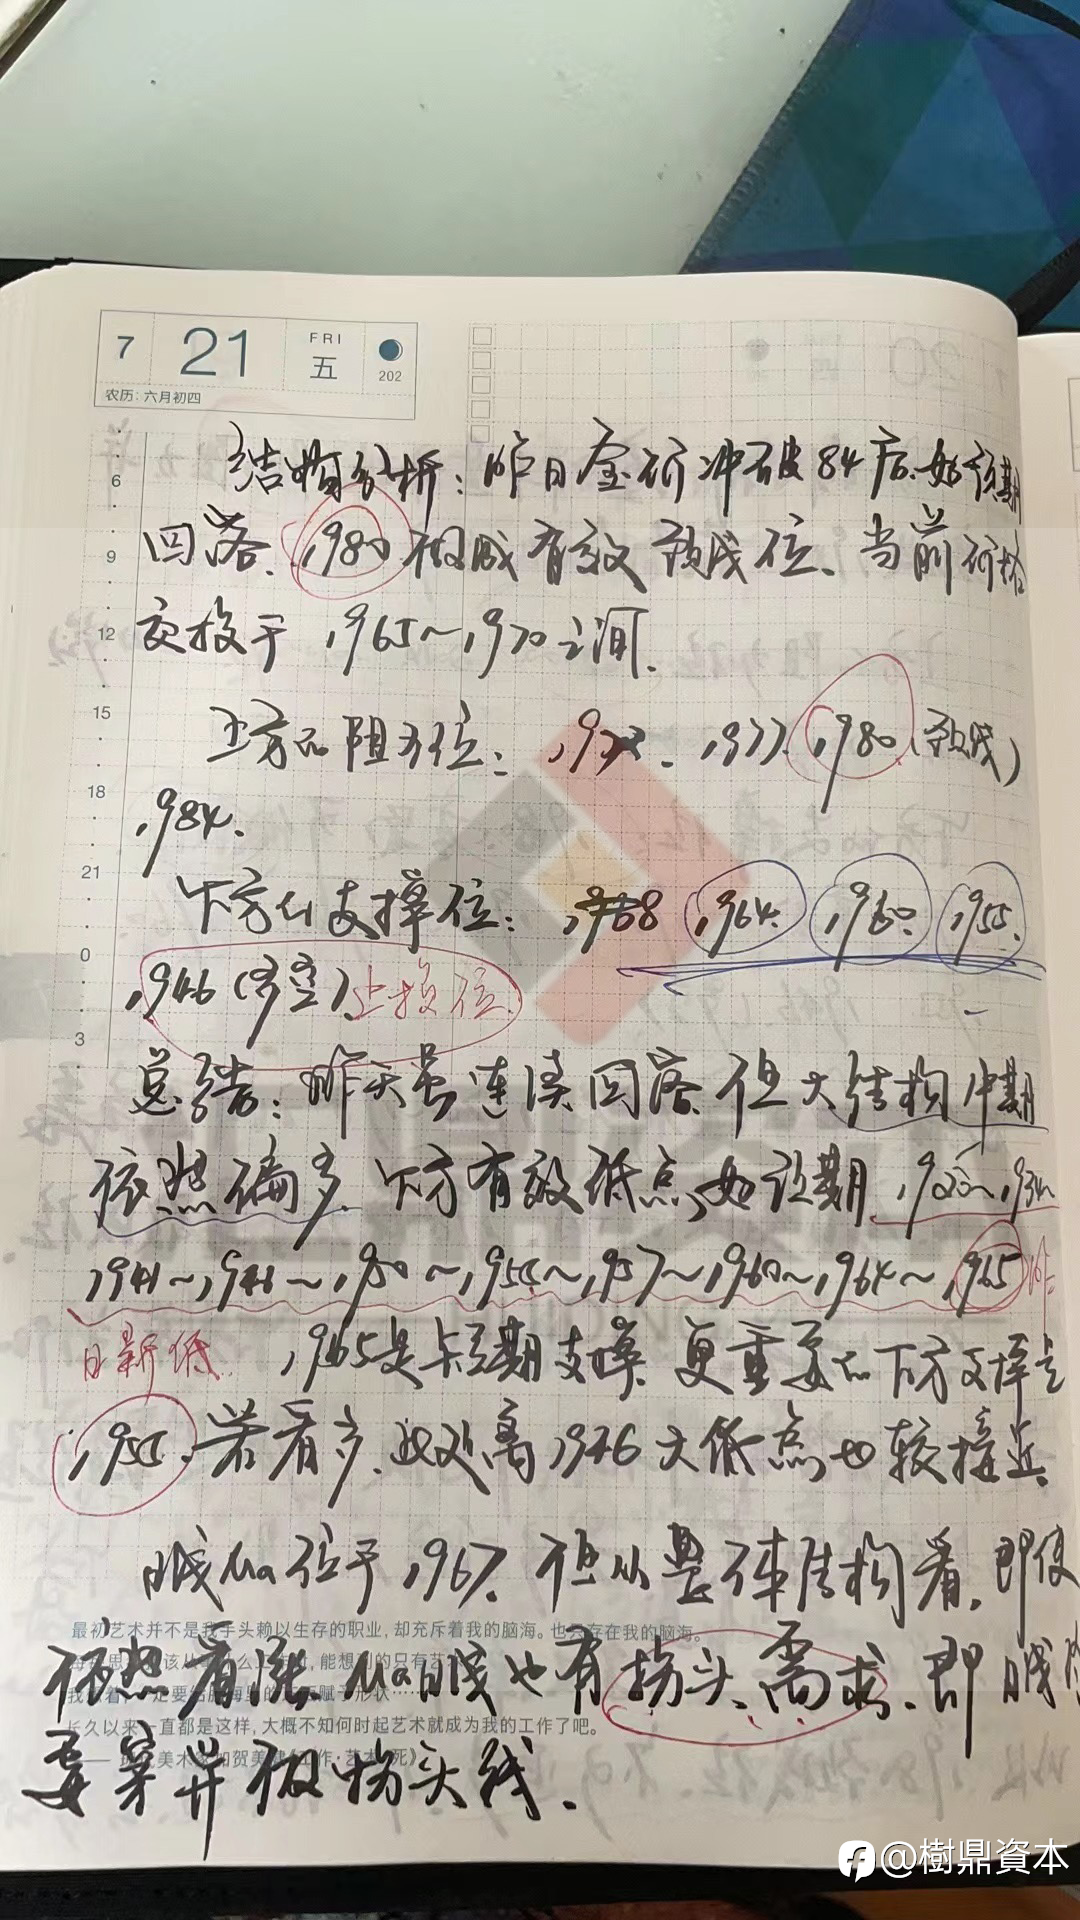 7 21 FRI 五 202
农历：六月初四
6
9
12
15
18
21
0
3
结构分析：昨日金价冲破84后.如预期
回落、,980 构成有效颈线位、当前价格
交投于 ,965～,970之间.
上方的阻力位： ,977. ,980（颈线）
,984.
下方的支撑位： ,968 ,964. ,960. ,955.
,946（多空）止损位.
总结：昨天虽连续回落.但大结构中期
依然偏多.下方有效低点如设期
,941～,946～,950～,955～,957～,960～,964～,965 昨
日新低. ,965是短期支撑.更重要的下方支撑是
,955.若看多.此处离,946大低点也较接近.
日线Ma位于,967.但从整体结构看.即使
依然看涨.Ma日线也有拐头需求.即日线
要穿并做拐头线.
最初艺术并不是我手头赖以生存的职业，却充斥着我的脑海。也只存在我的脑海。
能想到的只有艺
赋予形状……
长久以来一直都是这样，大概不知何时起艺术就成为我的工作了吧。
@樹鼎資本